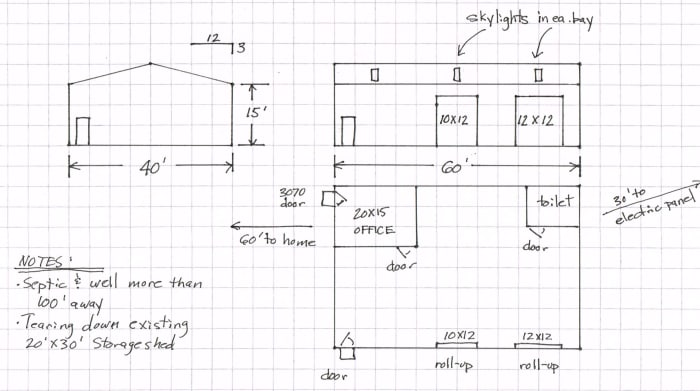 skylights in ea. bay
12
3
15'
10x12
12x12
40'
60'
3070
door
20x15
OFFICE
toilet
30' to
electric panel
60' to home
door
door
NOTES:
• Septic & well more than
100' away
• Tearing down existing
20'x30' Storage shed
10x12
12x12
roll-up
roll-up
door